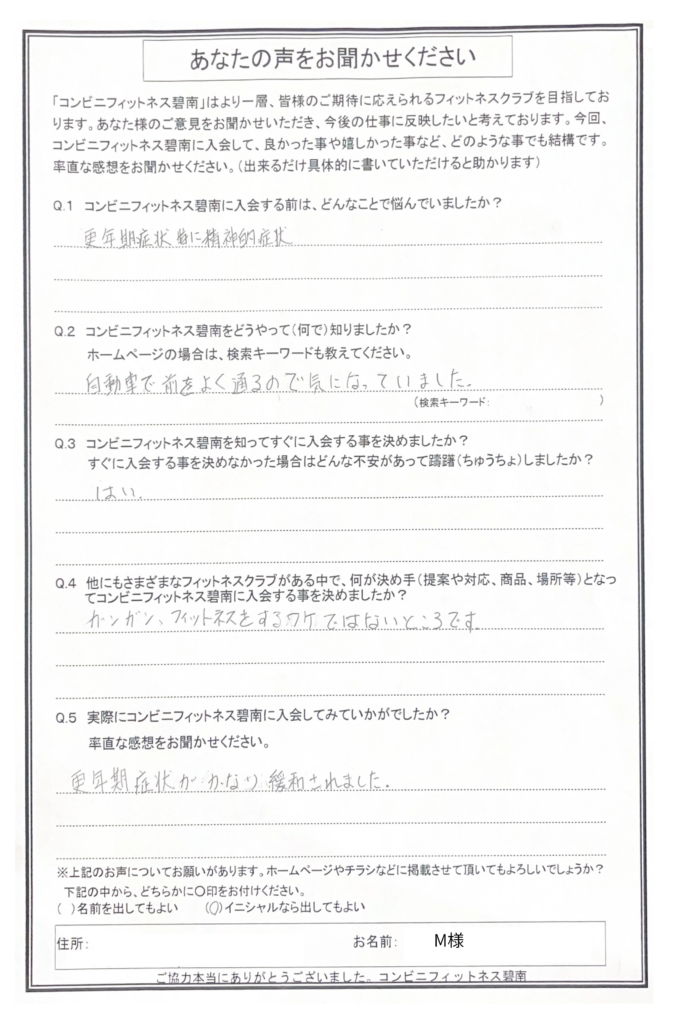 あなたの声をお聞かせください
「コンビニフィットネス碧南」はより一層、皆様のご期待に応えられるフィットネスクラブを目指してお
ります。あなた様のご意見をお聞かせいただき、今後の仕事に反映したいと考えております。今回、
コンビニフィットネス碧南に入会して、良かった事や嬉しかった事など、どのような事でも結構です。
率直な感想をお聞かせください。(出来るだけ具体的に書いていただけると助かります)
Q.1 コンビニフィットネス碧南に入会する前は、どんなことで悩んでいましたか?
更年期症状 特に精神的症状
Q.2 コンビニフィットネス碧南をどうやって(何で)知りましたか?
ホームページの場合は、検索キーワードも教えてください。
自動車で前をよく通るので気になっていました。
(検索キーワード: )
Q.3 コンビニフィットネス碧南を知ってすぐに入会する事を決めましたか?
すぐに入会する事を決めなかった場合はどんな不安があって躊躇(ちゅうちょ)しましたか?
はい。
Q.4 他にもさまざまなフィットネスクラブがある中で、何が決め手(提案や対応、商品、場所等)となっ
てコンビニフィットネス碧南に入会する事を決めましたか?
ガンガン、フィットネスをするワケではないところです。
Q.5 実際にコンビニフィットネス碧南に入会してみていかがでしたか?
率直な感想をお聞かせください。
更年期症状がかなり緩和されました。
※上記のお声についてお願いがあります。ホームページやチラシなどに掲載させて頂いてもよろしいでしょうか?
下記の中から、どちらかに〇印をお付けください。
( )名前を出してもよい (〇)イニシャルなら出してもよい
住所: お名前: M様
ご協力本当にありがとうございました。コンビニフィットネス碧南